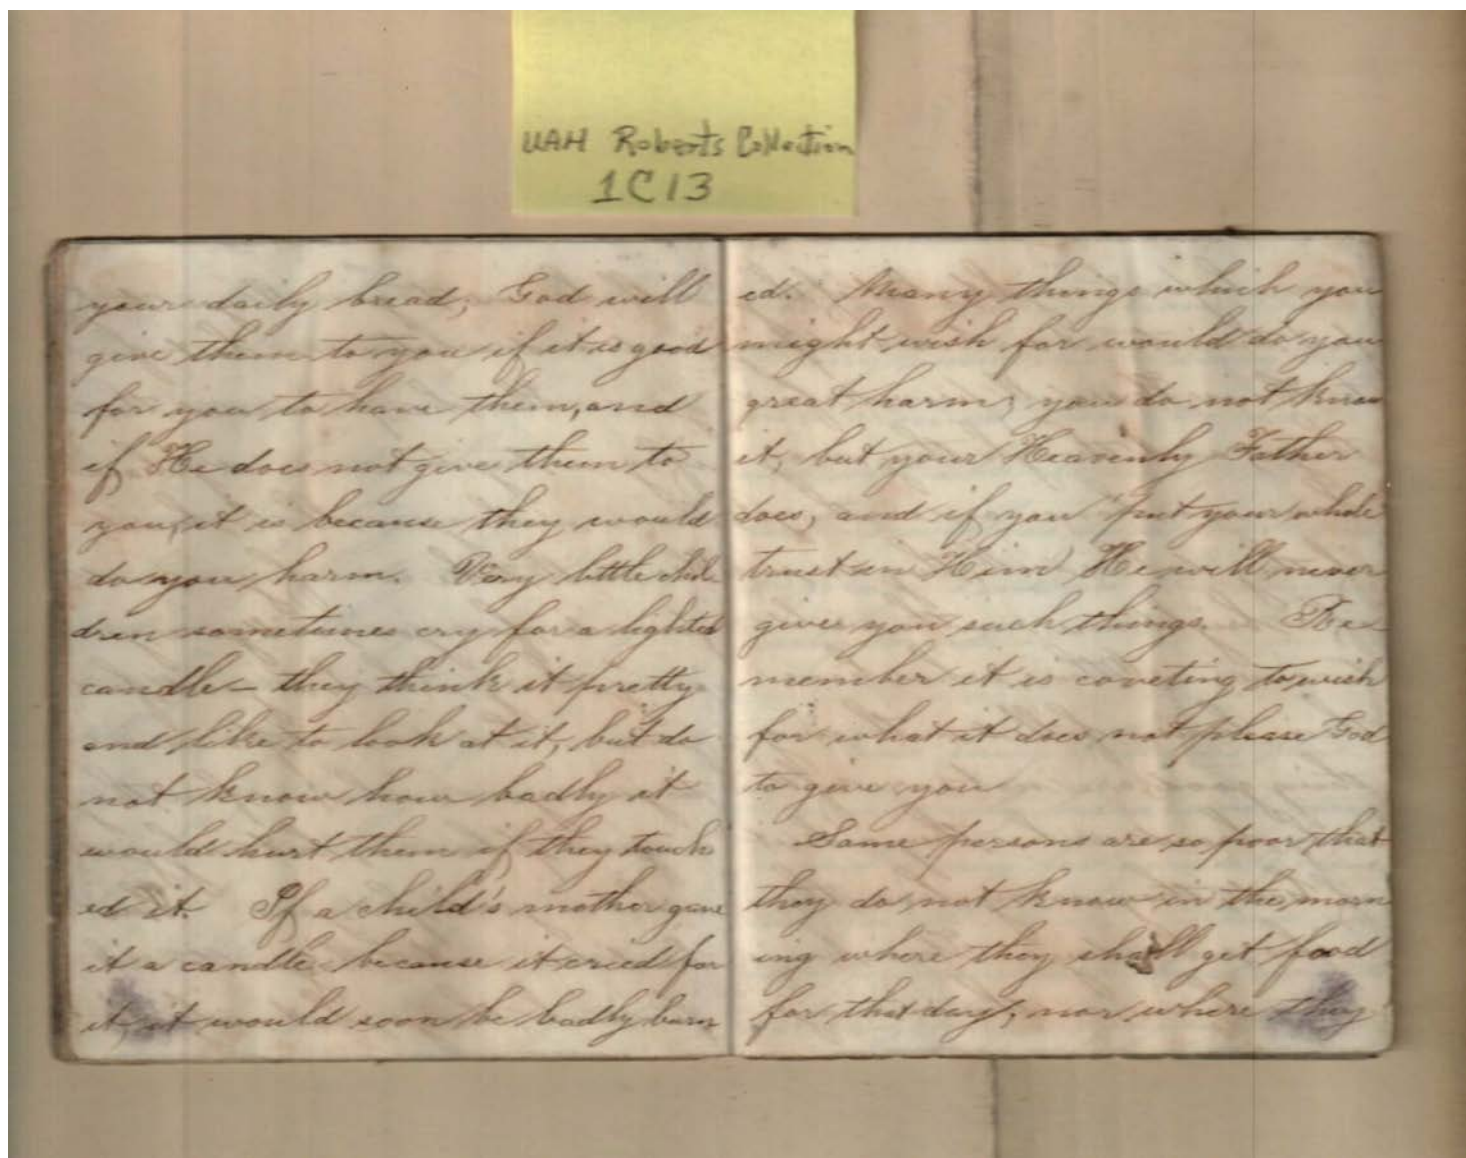 UAH Roberts Collection
1C13
your daily bread, God will
give them to you if it is good
for you to have them, and
if He does not give them to
you, it is because they would
do you harm. Very little chil
dren sometimes cry for a lighted
candle – they think it pretty
and like to look at it, but do
not know how badly it
would hurt them if they touch
ed it. If a child's mother gave
it a candle because it cried for
it, it would soon be badly burn
ed. Many things which you
might wish for would do you
great harm; you do not know
it, but your Heavenly Father
does, and if you put your whole
trust in Him He will never
give you such things. Re
member it is coveting to wish
for what it does not please God
to give you
Some persons are so poor that
they do not know in the morn
ing where they shall get food
for that day, nor where they